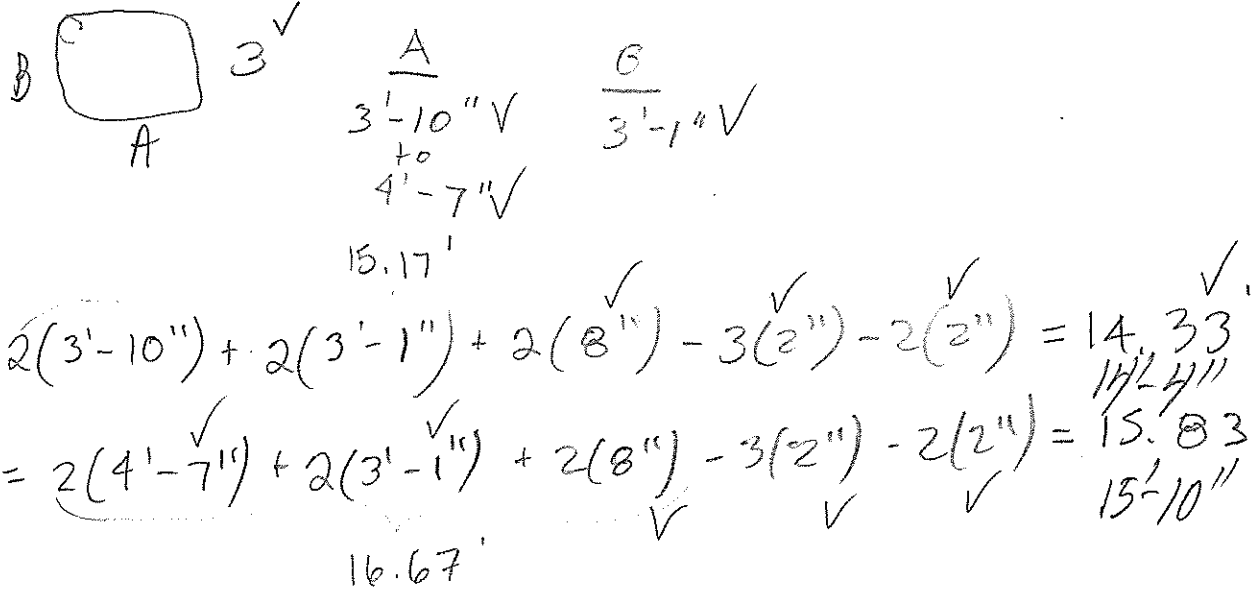 B 3 ✓ A B
A 3'-10" ✓ 3'-1" ✓
to
4'-7" ✓
15.17'
2(3'-10") + 2(3'-1") + 2(8") ✓ - 3(2") ✓ - 2(2") ✓ = 14.33' ✓
14'-4"
= 2(4'-7") ✓ + 2(3'-1") ✓ + 2(8") ✓ - 3(2") ✓ - 2(2") ✓ = 15.83
15'-10"
16.67'